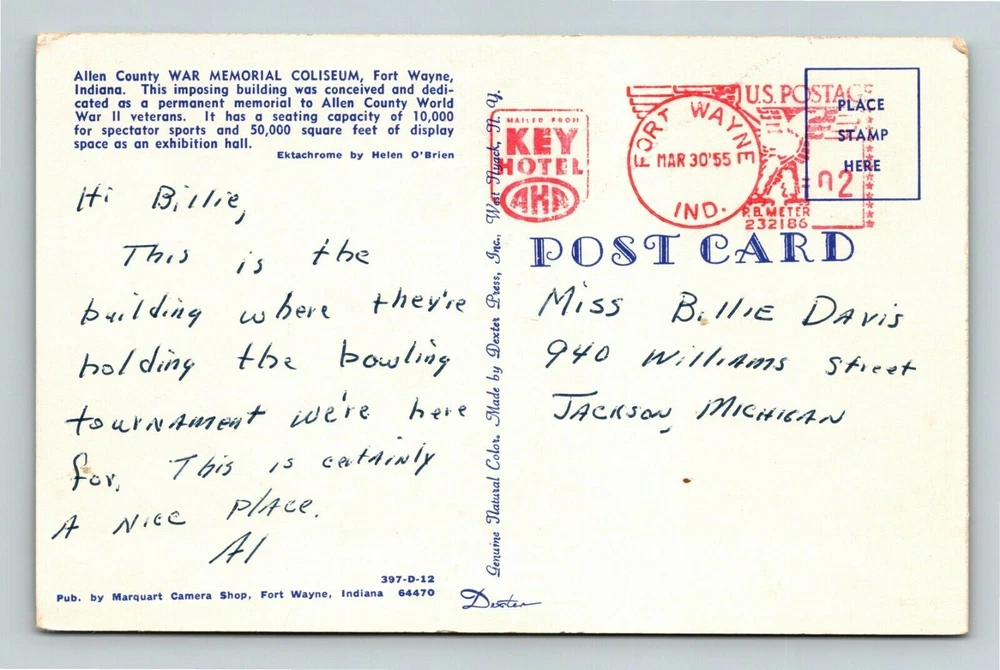 Allen County WAR MEMORIAL COLISEUM, Fort Wayne,
Indiana. This imposing building was conceived and dedi-
cated as a permanent memorial to Allen County World
War II veterans. It has a seating capacity of 10,000
for spectator sports and 50,000 square feet of display
space as an exhibition hall.
Ektachrome by Helen O'Brien
Hi Billie,
This is the
building where they're
holding the bowling
tournament we're here
for. This is certainly
A Nice place.
Al
397-D-12
Pub. by Marquart Camera Shop, Fort Wayne, Indiana 64470
Genuine Natural Color. Made by Dexter Press, Inc., West Nyack, N. Y.
Dexter
MAILED FROM
KEY
HOTEL
AHA
FORT WAYNE
MAR 30'55
IND.
U.S. POSTAGE
02
P.B. METER
232186
PLACE
STAMP
HERE
POST CARD
Miss Billie Davis
940 Williams Street
Jackson, Michigan